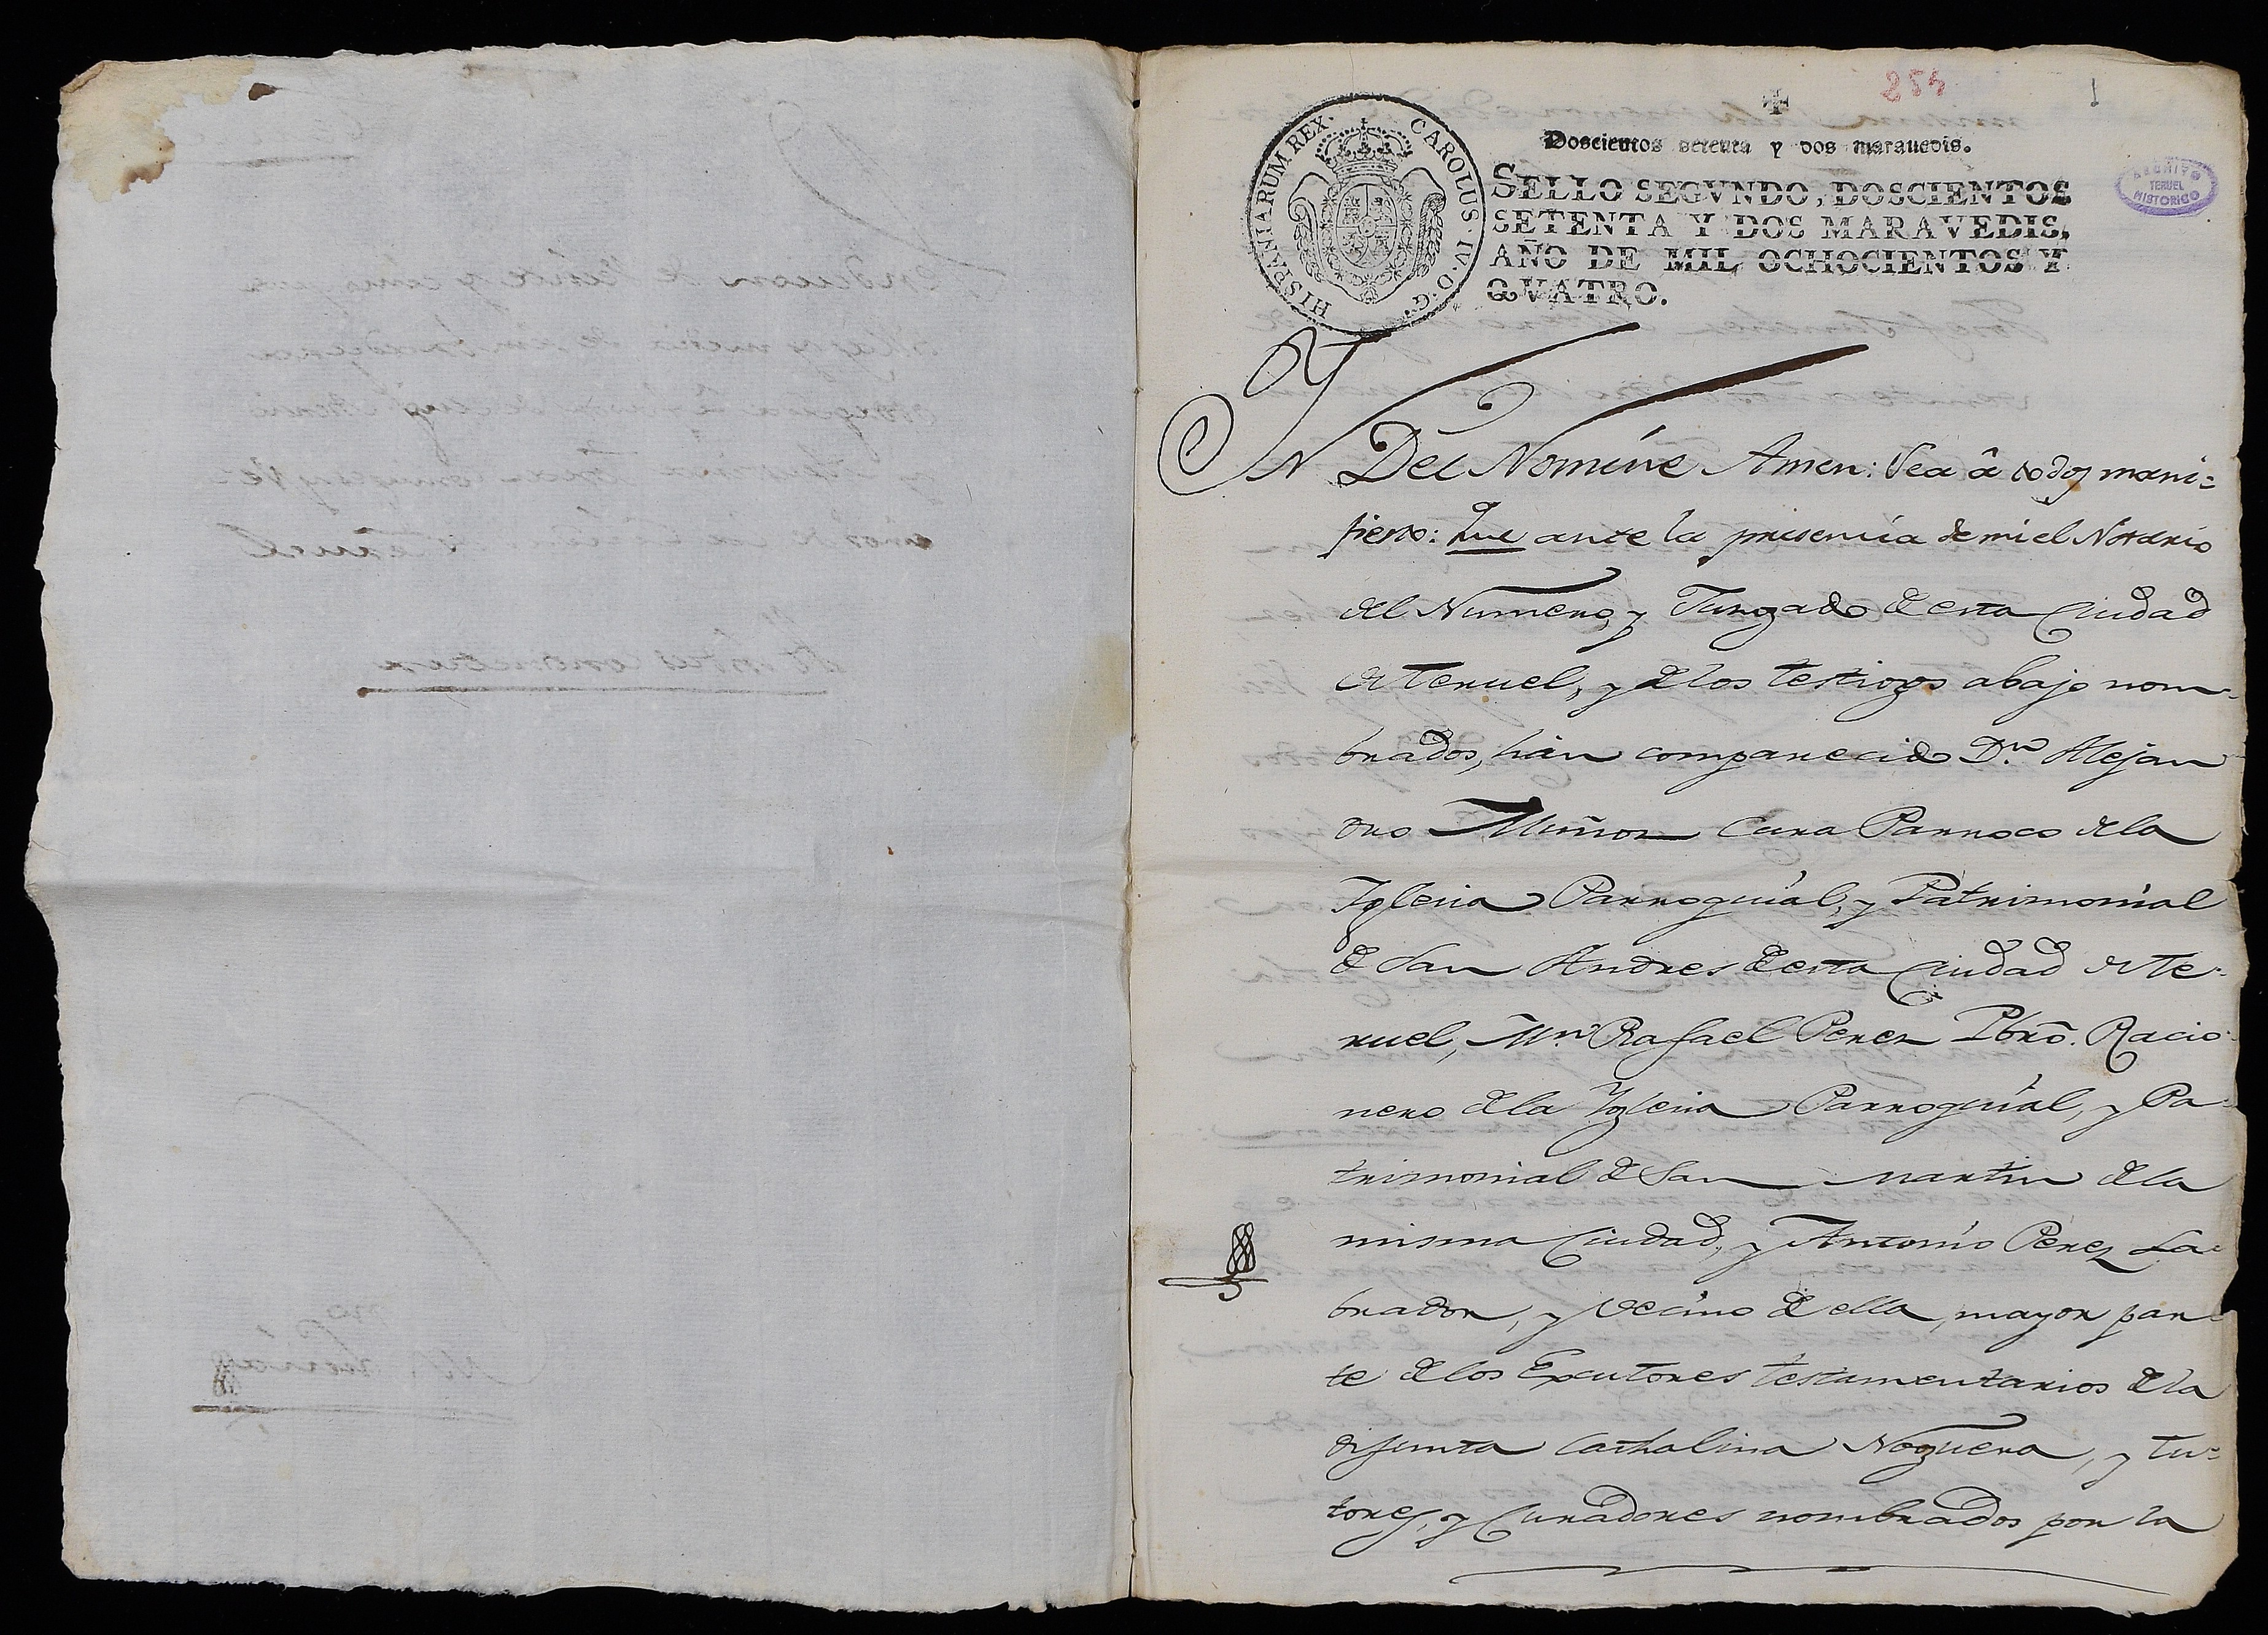 254
1
Doscientos setenta y dos marauedis.
HISPANIARUM REX. CAROLUS·IV·D·G·
SELLO SEGVNDO, DOSCIENTOS
SETENTA Y DOS MARAVEDIS,
AÑO DE MIL OCHOCIENTOS Y
QVATRO.
ARCHIVO
TERUEL
HISTORICO
YN Dei Nomine Amen: Sea â todos mani=
fiesto: Que ante la presencia de mi el Notario
del Numero, y Juzgado de esta Ciudad
de Teruel, y de los testigos abajo nom=
brados, hán comparecido Dn. Alejan
dro Muñoz Cura Parroco de la
Yglesia Parroquial, y Patrimonial
de San Andres de esta Ciudad de Te=
ruel, Mn. Rafael Perez Pbrõ. Racio=
nero de la Yglesia Parroquial, y Pa=
trimonial de San Martin de la
misma Ciudad, y Antonio Perez La=
brador, y vecino de ella, mayor par=
te de los Executores testamentarios de la
difunta Cathalina Noguera, y tu=
tores, y Curadores nombrados por la